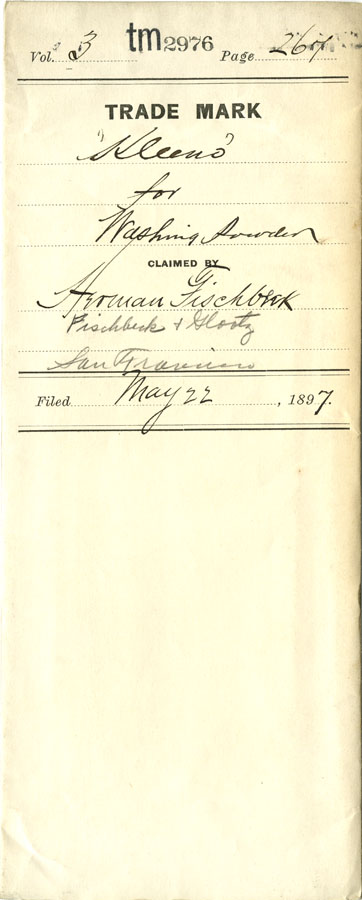 Vol. 3 tm 2976 Page 267
TRADE MARK
"Kleeno"
for
Washing Powder
CLAIMED BY
Herman Fischbeck
Fischbeck & Glootz
San Francisco
Filed May 22, 1897.